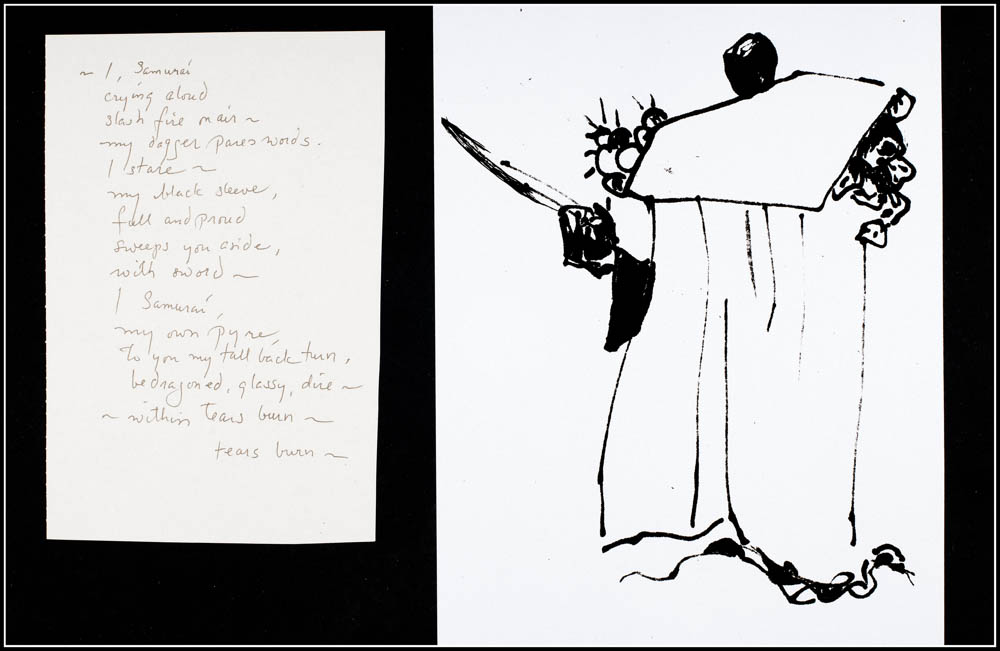 ~ I, Samurai
crying aloud
slash fire on air ~
my dagger pares words.
I stare ~
my black sleeve,
full and proud
sweeps you aside,
with sword ~
I Samurai,
my own pyre,
to you my tall back turn,
bedragoned, glassy, dire ~
~ within tears burn ~
tears burn ~